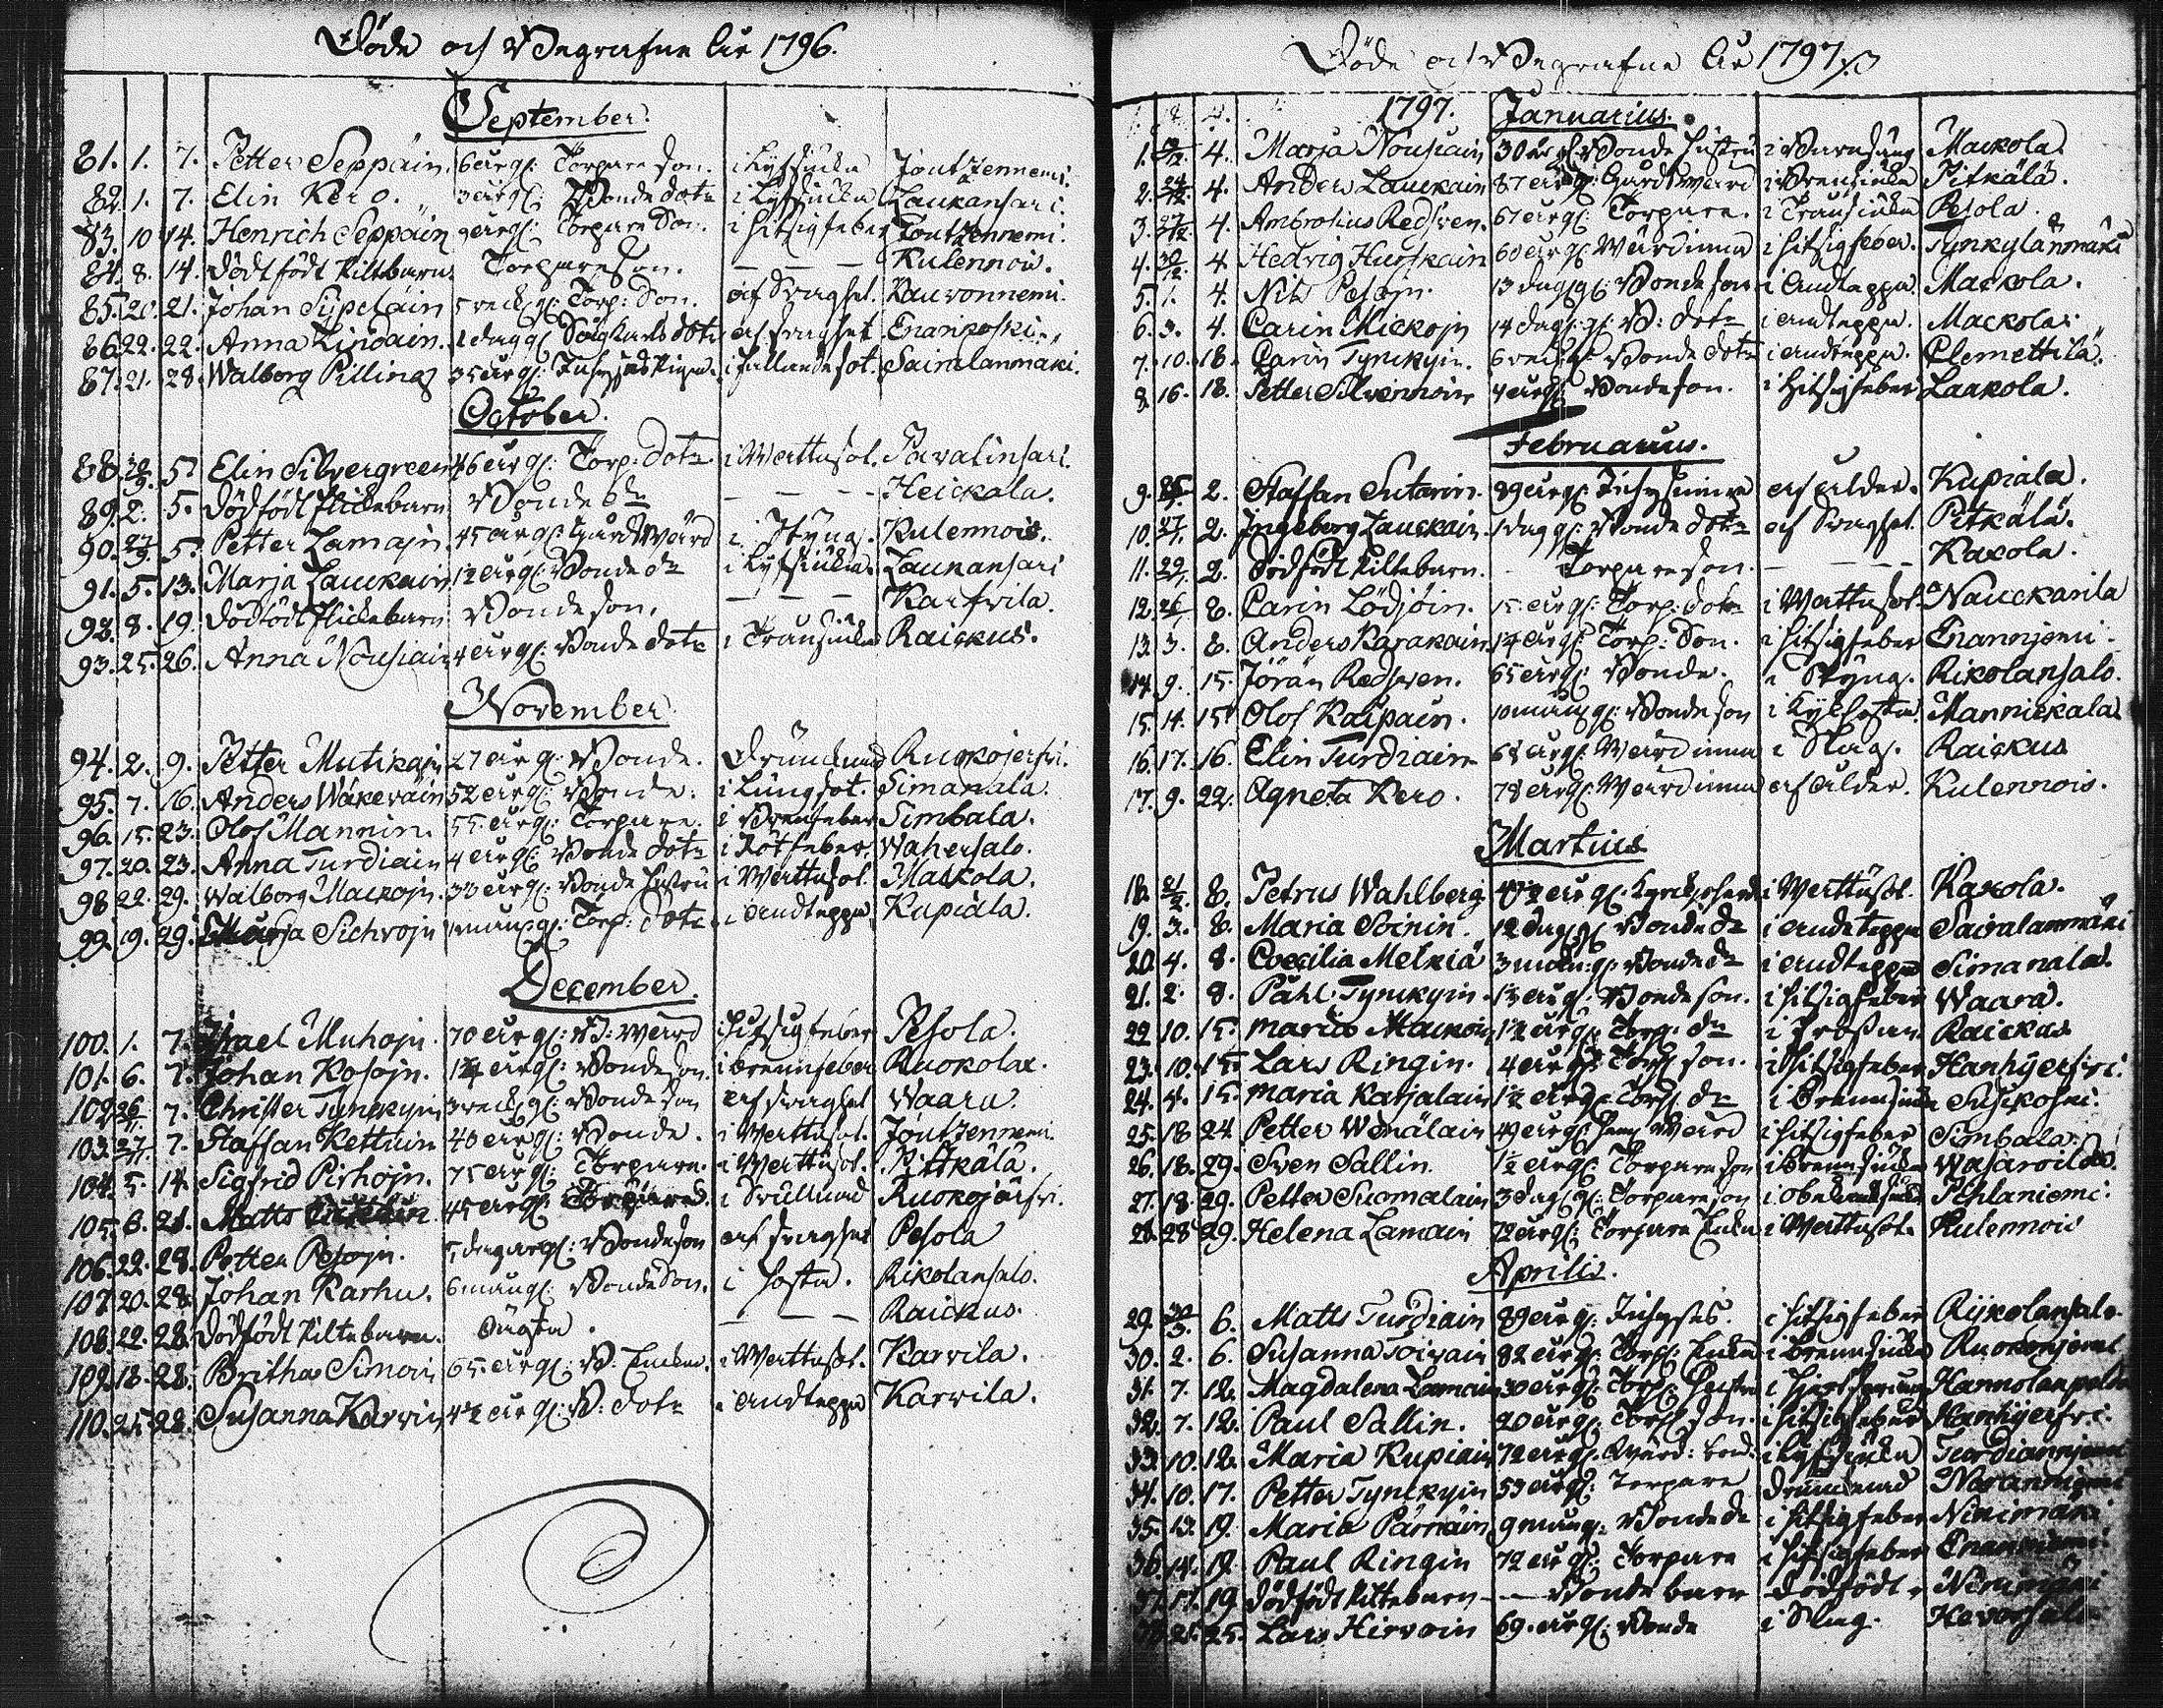 Döde och Begrafne År 1796.
September.
81. 1. 7. Petter Seppäin. 6 år gl: Torpare son. i Lyfsiuka Joutzennemi.
82. 1. 7. Elin Kero. 3 år gl: Bonde dotr i Lyfsiuka Laukansari.
83. 10 14. Henrich Seppäin 9 år gl: Torpare Son. i hitsig feber Joutzennemi.
84. 8. 14. Dödfödt Piltebarn Torpare son. — — — Kulennois.
85. 20. 21. Johan Sijpeläin 5 veck. gl: Torp: Son. af Svaghet. Kauvonnemi.
86. 22. 22. Anna Lindain. 1 dag gl dotr af svaghet Enankoski.
87. 21. 28. Walborg Pillinag 35 år gl: Inhyses Piga. i fallandesot. Sairalanmäki.
October.
88. 28/9. 5. Elin Silvergreen 46 år gl: Torp: dotr i Wattusot. Pavalinsari.
89. 2. 5. dödfödt flickebarn Bonde dr — — — Heickala.
90. 27/9. 5. Petter Lamajn. 45 år gl: Gårdswärd i Styng. Kulennois.
91. 5. 13. Marja Lauckain 12 år gl: Bonde dr i Lyfsiuka. Laukansari
92. 8. 19. dödfödt flickebarn Bonde son. — — — Karfvila.
93. 25. 26. Anna Nousiain 4 år gl: Bonde dotr i Transiuka Raickus.
November
94. 2. 9. Petter Mutikajn 27 år gl: Bonde. Drunknad Ruokojerfvi.
95. 7. 16. Anders Wäkeväin 52 år gl: Bonde. i Lungsot. Simanala.
96. 15. 23. Olof Mannin. 55 år gl: Torpare. i Brenfeber Simbala.
97. 20. 23. Anna Turdiain 4 år gl: Bonde dotr i Rötfeber. Wahersalo.
98 22. 29. Walborg Mackojn. 33 år gl: Bonde hustru i Wattusot. Mackola.
99. 19. 29. Marja Sichvojn gl: Torp: dotr i andtäppa Kupiala.
December.
100. 1. 7. Israel Muhojn. 70 år gl: B: Wärd i hitsig feber Pesola.
101. 6. 7. Johan Kosojn. år gl: Bonde son. i brennfeber Ruokolax.
102 26/11. 7. Christer Tynckyin 3 veck gl: Bonde son af svaghet Waara.
103. 27/11. 7. Staffan Kettuin 40 år gl: Bonde. i Wattusot. Joutzennemi.
104. 5. 14. Sigfrid Pirhojn. 75 år gl: Torpare. i Wattusot. Pittkälä.
105. 6. 21. Matts 45 år gl: Torpare. i Svullnad Ruokojärfvi.
106. 22. 28. Petter Pesojn. 5 dagar gl: Bonde son af svaghet Pesola
107. 20. 28. Johan Karhu. 6 mån gl: Bonde Son. i hosta. Rikolansalo.
108. 22. 28. dödfödt Piltebarn. — — — Raickus.
109. 18. 28. Britha Simoin 65 år gl: B: Encka. i Wattusot. Karvila.
110. 25. 28. Susanna Karvin år gl: B: dotr i andtäppa Karwila.
Döde och Begrafne År 1797.
1797. Januarius.
1. 4. Marja Nousiain 30 år gl Bonde hustru i Barnsäng Mackola.
2. 24/12. 4. Anders Lauckain 87 år gl: Gårdswärd i Brensiuka Pitkälä.
3. 27/12. 4. Ambrosius Redsven. 67 år gl: Torpare. i Transiuka Pesola.
4. 30/12. 4 Hedvig Hurskain 60 år gl: Wärdinna i hitsig feber. Tynkylänmäki
5. 1. 4. Nils Pesojn. 13 dag gl: Bonde son i andtäppa. Mackola.
6. 3. 4. Carin Mickojn 14 dag: gl: B: dotr i andtäppa. Mackola.
7. 10. 18. Carin Tynckyin. 6 veck: gl: Bonde dotr i andtäppa. Clemettilä.
8. 16. 18. Petter Silvennoin 4 år gl: Bonde son. i hitsig feber Laakola.
Februarius.
9. 2. Staffan Sutarin. 89 år gl: Inhyses af ålder. Kupiala.
10. 27/1. 2. Ingeborg Lauckain. 1 dag gl: Bonde dotr af Svaghet. Pitkälä.
11. 29/1. 2. Dödfödt Piltebarn. — Torpare son. — — — Kakola.
12. 26/1. 8. Carin Lödjöin. 15 år gl: Torp: dotr i Wattusot. Nauckarila
13. 3. 8. Anders Karakain 14 år gl: Torp: Son. i hitsig feber Enannjemi.
14. 9. 15. Jörän Redsven. 65 år gl: Bonde. i Styng. Rikolansalo.
15. 14. 15. Olof Kaipain. 10 mån gl: Bonde son i Kykhosta Mannickala
16. 17. 16. Elin Turdiain 68 år gl: Wärdinna i Slag. Raickus
17. 9. 22. Agneta Kero. 78 år gl: Wärdinna af ålder. Kulennois.
Martius
18. 21/2. 8. Petrus Wahlberg år gl: i Wattusot. Kakola.
19. 3. 8. Maria Soinin. 12 dag gl: Bonde dr i andtäppa Sairalanmäki
20. 4. 8. Coecilia Melkiä 3 mån: gl: Bonde dr i andtäppa Simanala.
21. 2. 8. Påhl Tynckyin. 13 år gl: Bonde son. i hitsig feber Waara.
22 10. 15. Maria Mackoin 1½ år gl: Torp: dr i Frossan. Raickus
23. 10. 15. Lars Ringin. 4 år gl: Torp: son. i hitsig feber Hanhijerfvi.
24. 4. 15. Maria Karjalain 1½ år gl: Torp: dr i Brennsiuka Susikoski.
25. 18 24. Petter Wenäläin 49 år gl: Hem: Wärd i hitsig feber Simbala.
26. 18. 29. Sven Sallin. 1½ år gl: Torpare son i Brennsiuka Wasaroila.
27. 18 29. Petter Suomalain 3 dag gl: Torpare son i obekant siuka Pihlaniemi.
28. 28 29. Helena Lamain 72 år gl: Torpare Encka i Wattusot. Kulennois
Aprilis.
29. 30/3. 6. Matts Turdiain 89 år gl: Inhyses. i hitsig feber Rijkolansalo.
30. 2. 6. Susanna Toivain 82 år gl: Torp: Encka i brennsiuka Ruokonjemi
31. 7. 12. Magdalena Lamain 30 år gl: Torp: Hustru i Hannolanpelto
32. 7. 12. Paul Sallin. 20 år gl: Torp: Son. i hitsig feber Hanhijerfvi.
33. 10. 12. Maria Kupiain 72 år gl: i Lyfsiuka Turdiannjemi
34. 10. 17. Petter Tynckyin 53 år gl: Torpare Drunknad
35. 13. 19. Maria Pärnäin 9 mån gl: Bonde dr i hitsig feber Niinimäki
36. 14. 19. Paul Ringin 72 år gl: Torpare i hitsig feber Enanniemi.
37. 17. 19 dödfödt Piltebarn — — Bonde barn dödfödt. Niinimäki
38. 25. 25. Lars Hirvoin 69. år gl: Bonde i Slag. Hevossalo